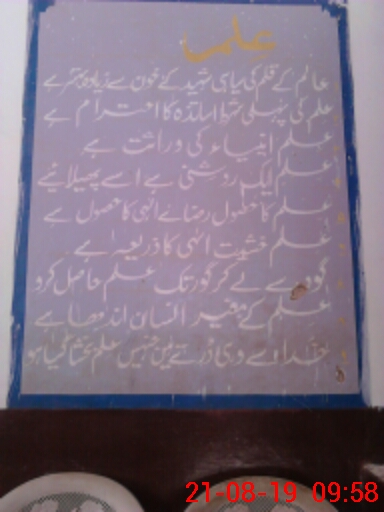 علم
عالم کے قلم کی سیاہی شہید کے خون سے زیادہ بہتر ہے
علم کی پہلی شرط اساتذہ کا احترام ہے
علم انبیاء کی وراثت ہے
علم ایک روشنی ہے اسے پھیلائیے
علم کا حصول رضائے الہی کا حصول ہے
علم خشیت الہی کا ذریعہ ہے
گود سے لے کر گور تک علم حاصل کرو
علم کے بغیر انسان اندھا ہے
خدا سے وہی ڈرتے ہیں جنہیں علم بخشا گیا ہو
21-08-19 09:58